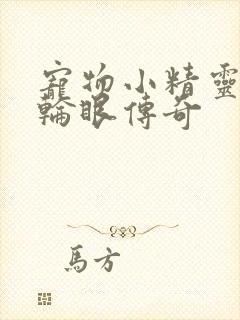 寵物小精靈
輪眼傳奇
馬方